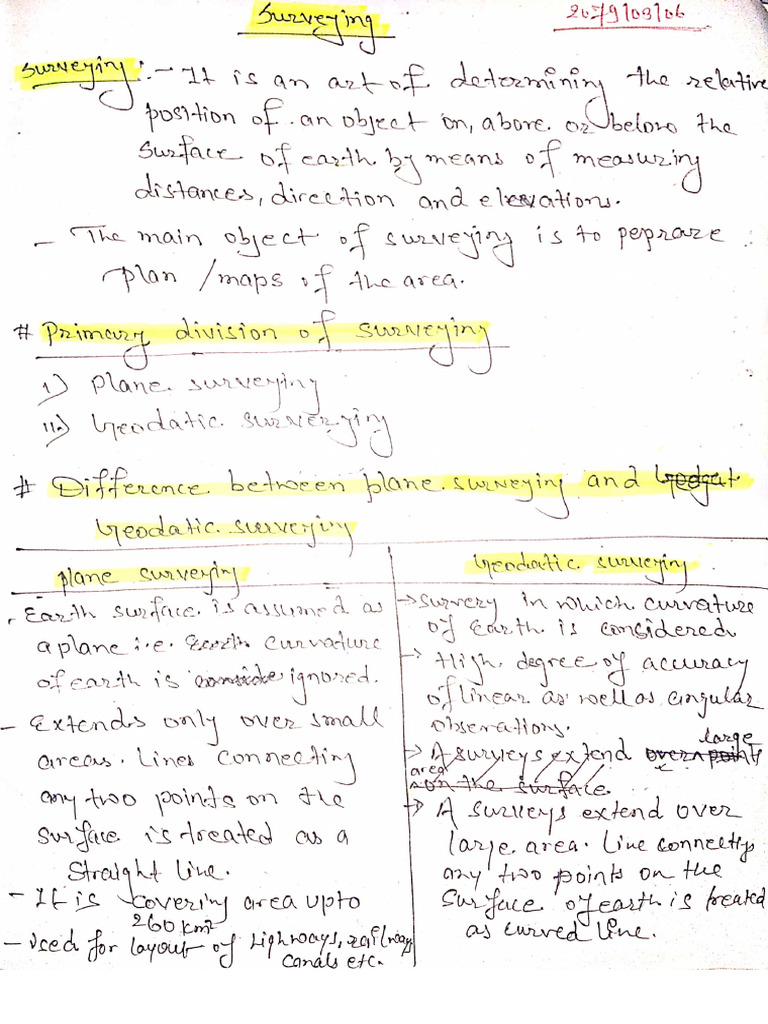 Surveying
2079/03/06
Surveying :- It is an art of determining the relative
position of an object on, above or below the
surface of earth by means of measuring
distances, direction and elevations.
- The main object of surveying is to peprare
plan / maps of the area.
# Primary division of surveying
i) Plane surveying
ii) Geodatic surveying
# Difference between plane surveying and
Geodatic surveying
plane surveying
- Earth surface is assumed as
a plane i.e. curvature
of earth is ignored.
- Extends only over small
areas. Lines connecting
any two points on the
surface is treated as a
straight line.
- It is covering area upto
260 km²
- Used for layout of highways, railways
canals etc.
Geodatic surveying
→ survery in which curvature
of Earth is considered
→ High degree of accuracy
of linear as well as angular
obserations.
→ A surveys extend over points large
area on the surface.
→ A surveys extend over
large area. Line connecting
any two points on the
surface of earth is treated
as curved line.